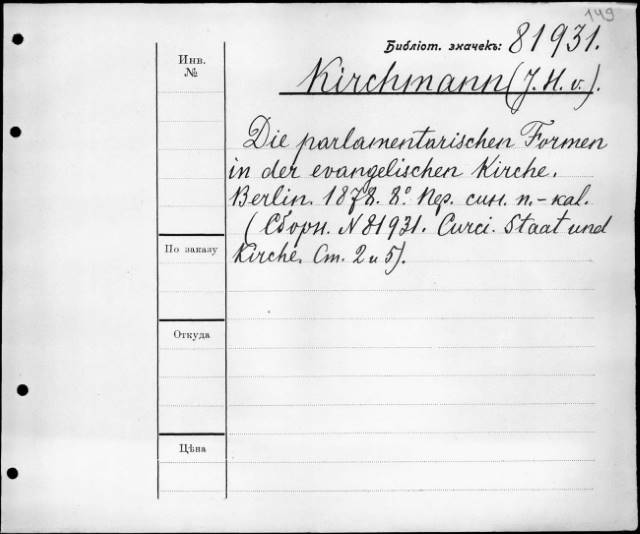 149
Библіот. значекъ: 81931.
Инв.
№
Kirchmann (J. H. v.).
Die parlamentarischen Formen
in der evangelischen Kirche.
Berlin. 1878. 8º. Пер. син. п.-кал.
(Сборн. N 81931. Curci. Staat und
Kirche. Ст. 2 и 5).
По заказу
Откуда
Цѣна